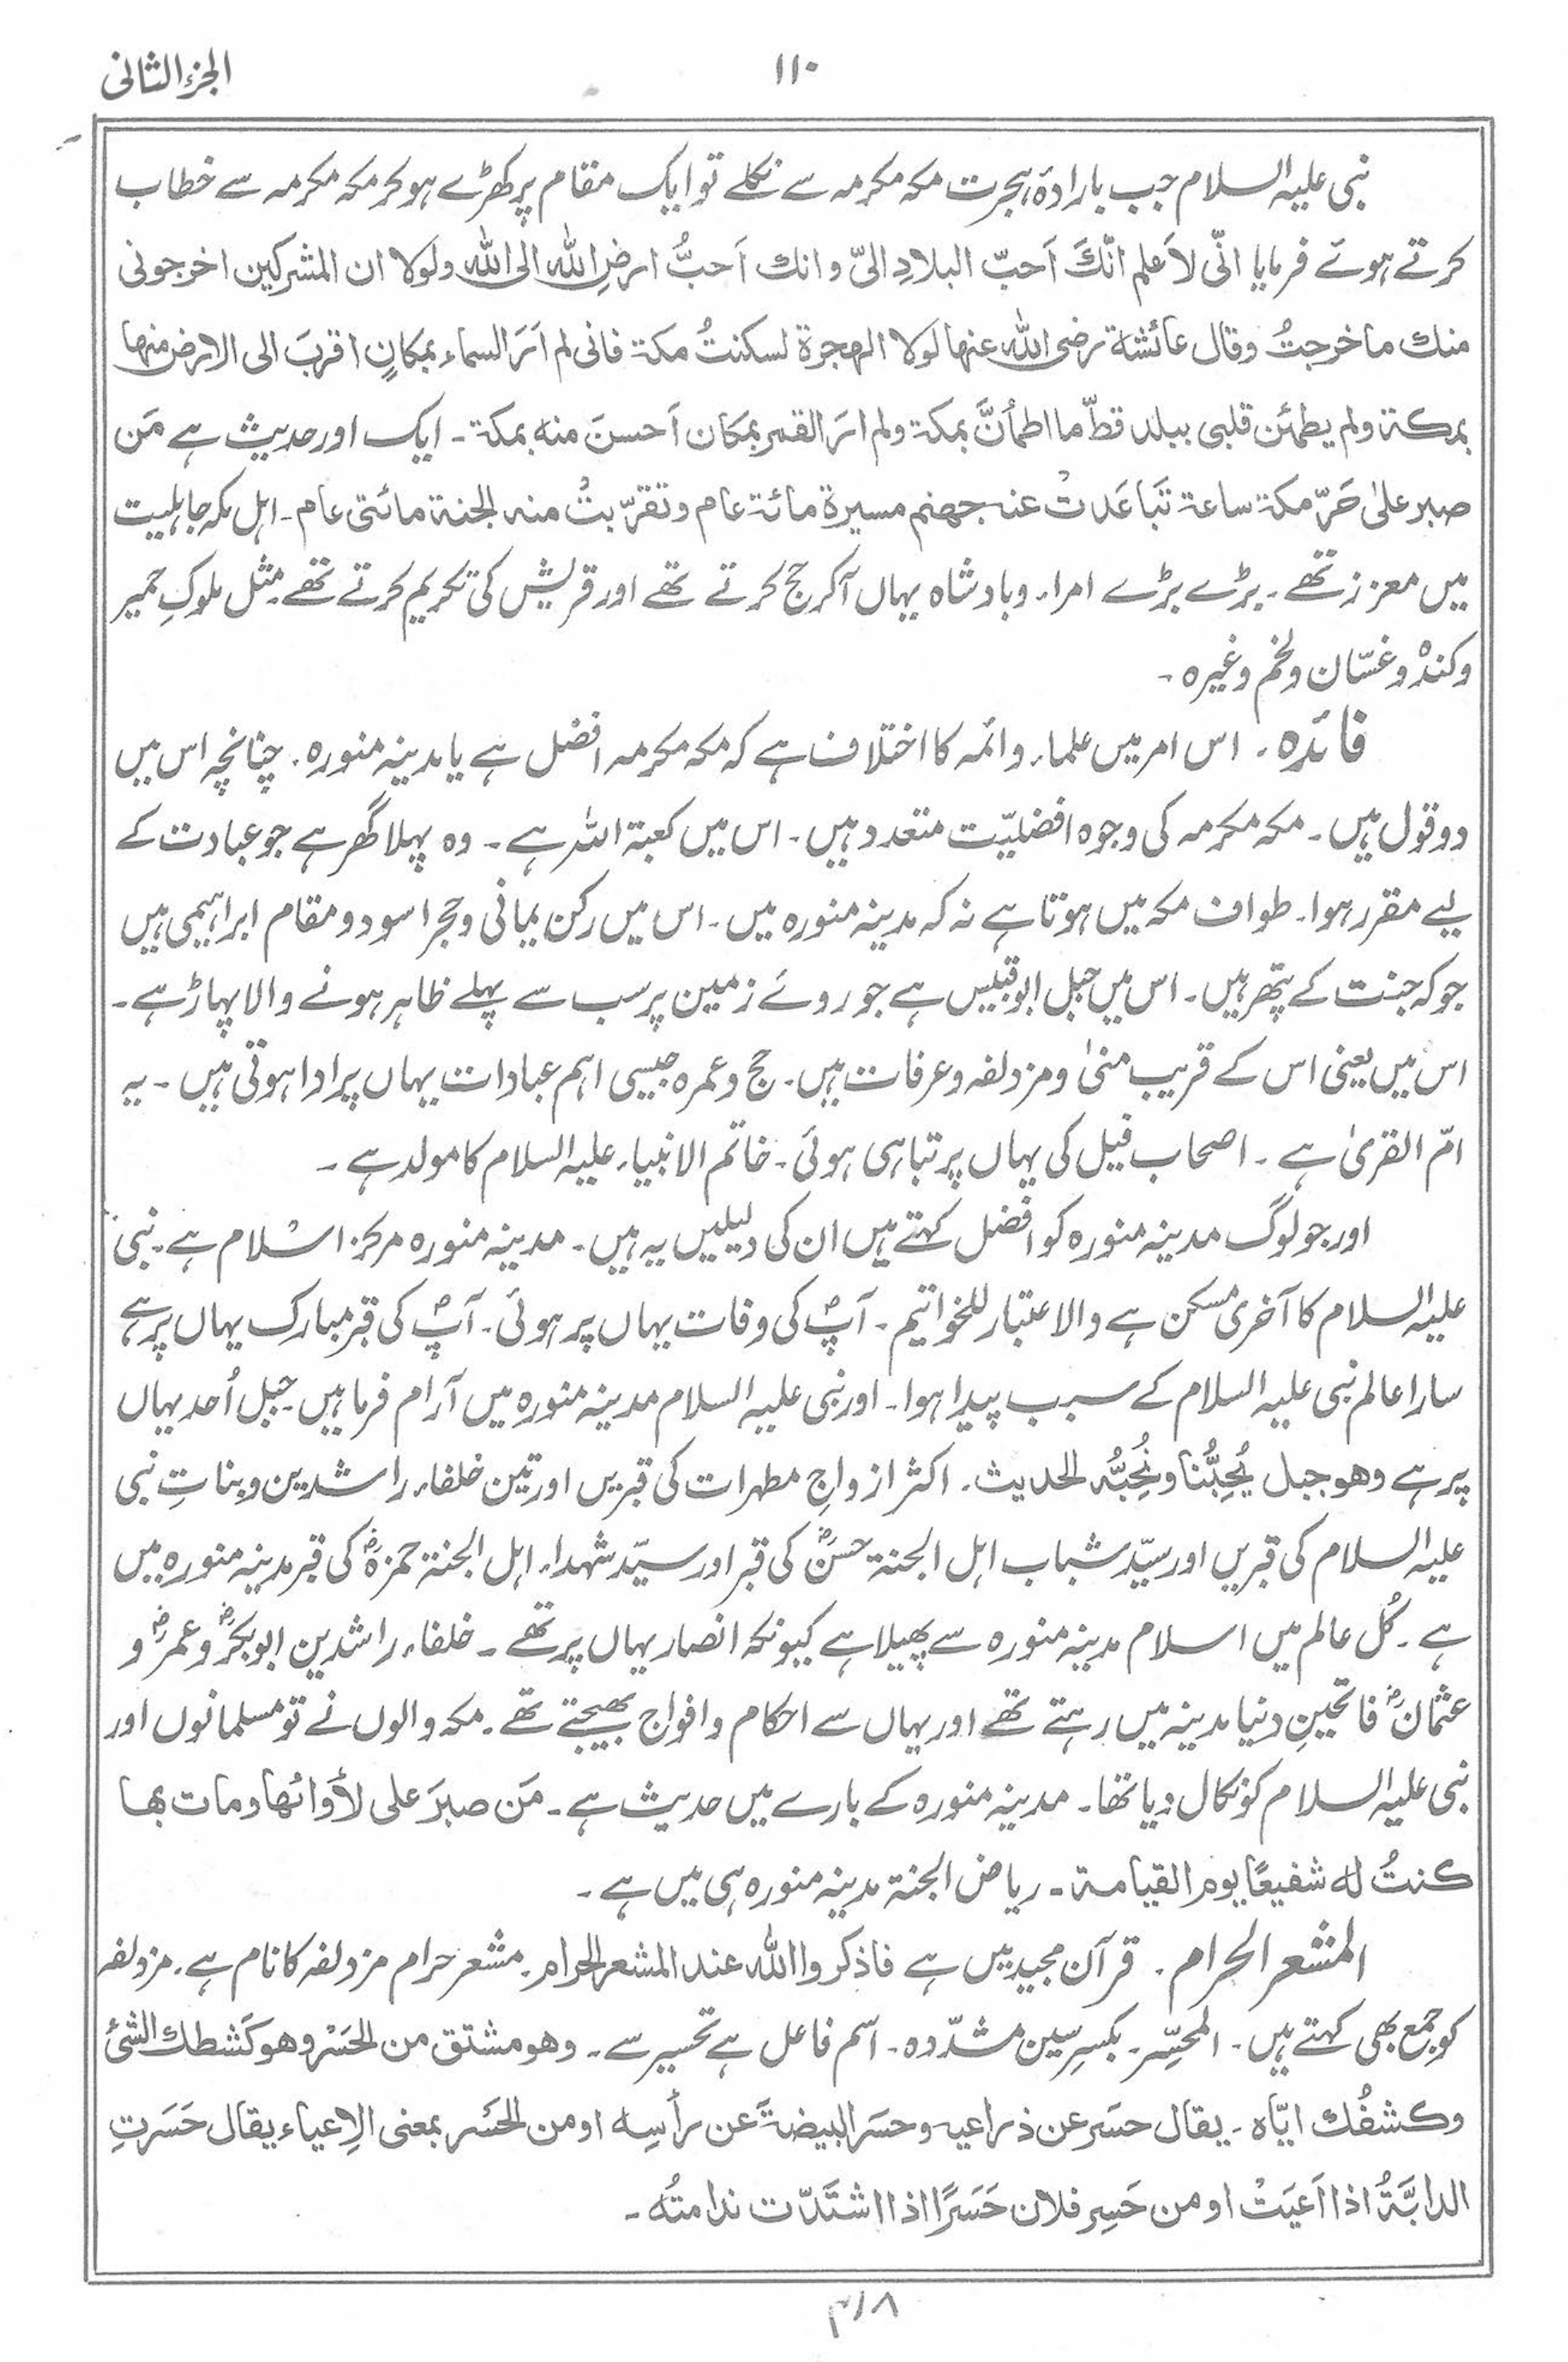 الجزء الثانی
۱۱۰
نبی علیہ السلام جب بارادۂ ہجرت مکہ مکرمہ سے نکلے تو ایک مقام پر کھڑے ہوکر مکہ مکرمہ سے خطاب
کرتے ہوئے فرمایا انّی لَأعلم انّكَ اَحبّ البلادِ الیّ وانك اَحبُّ ارضِ اللّٰہ الی اللّٰہ ولولا ان المشركين اخرجونی
منك ما خرجتُ وقال عائشة رضی اللّٰہ عنہا لولا الهجرة لسكنتُ مكة فانی لم اَرَ السماء بمکانٍ اقربَ الی الارض منها
بمکة ولم یطمئن قلبی ببلد قطّ ما اطمأنَّ بمکة ولم ارَ القمر بمَکان اَحسنَ منه بمکة۔ ایک اور حدیث ہے مَن
صبر علیٰ حَرّ مکة ساعة تَبَاعَدتْ عنه جهنم مسیرة مائة عام وتقرّبتْ منه الجنة مائتی عام۔ اہل مکہ جاہلیت
میں معزز تھے۔ بڑے بڑے امراء و بادشاہ یہاں آکر حج کرتے تھے اور قریش کی تکریم کرتے تھے۔ مثل ملوکِ حمیر
وکندہ وغسّان ولخم وغیرہ۔
فائدہ۔ اس امر میں علماء وائمہ کا اختلاف ہے کہ مکہ مکرمہ افضل ہے یا مدینہ منورہ۔ چنانچہ اس میں
دو قول ہیں۔ مکہ مکرمہ کی وجوہ افضلیّت متعدد ہیں۔ اس میں کعبۃ اللہ ہے۔ وہ پہلا گھر ہے جو عبادت کے
لیے مقرر ہوا۔ طواف مکہ میں ہوتا ہے نہ کہ مدینہ منورہ میں۔ اس میں رکن یمانی وحجر اسود و مقام ابراہیمی ہیں
جوکہ جنت کے پتھر ہیں۔ اس میں جبل ابو قبیس ہے جو روئے زمین پر سب سے پہلے ظاہر ہونے والا پہاڑ ہے۔
اس میں یعنی اس کے قریب منیٰ ومزدلفہ وعرفات ہیں۔ حج وعمرہ جیسی اہم عبادات یہاں پر ادا ہوتی ہیں۔ یہ
امّ القریٰ ہے۔ اصحاب فیل کی یہاں پر تباہی ہوئی۔ خاتم الانبیاء علیہ السلام کا مولد ہے۔
اور جو لوگ مدینہ منورہ کو افضل کہتے ہیں ان کی دلیلیں یہ ہیں۔ مدینہ منورہ مرکز اسلام ہے۔ نبی
علیہ السلام کا آخری مسکن ہے والاعتبار للخواتیم۔ آپؐ کی وفات یہاں پر ہوئی۔ آپؐ کی قبر مبارک یہاں پر ہے
سارا عالم نبی علیہ السلام کے سبب پیدا ہوا۔ اور نبی علیہ السلام مدینہ منورہ میں آرام فرما ہیں۔ جبل اُحد یہاں
پر ہے وهو جبل یُحِبُّنا ونُحِبُّہ الحدیث۔ اکثر ازواجِ مطہرات کی قبریں اور تین خلفاء راشدین و بناتِ نبی
علیہ السلام کی قبریں اور سیّد شباب اہل الجنۃ حسنؓ کی قبر اور سیّد شہداء اہل الجنۃ حمزہؓ کی قبر مدینہ منورہ میں
ہے۔ کُل عالم میں اسلام مدینہ منورہ سے پھیلا ہے کیونکہ انصار یہاں پر تھے۔ خلفاء راشدین ابوبکرؓ وعمرؓ و
عثمانؓ فاتحینِ دنیا مدینہ میں رہتے تھے اور یہاں سے احکام وافواج بھیجتے تھے۔ مکہ والوں نے تو مسلمانوں اور
نبی علیہ السلام کو نکال دیا تھا۔ مدینہ منورہ کے بارے میں حدیث ہے۔ مَن صبرَ علی لأوائها ومات بها
کنتُ له شفیعًا یوم القیامة۔ ریاض الجنۃ مدینہ منورہ ہی میں ہے۔
المشعر الحرام۔ قرآن مجید میں ہے فاذكروا اللّٰہ عند المشعر الحرام۔ مشعر حرام مزدلفہ کا نام ہے۔ مزدلفہ
کو جمع بھی کہتے ہیں۔ المحسِّر۔ بکسرِ سین مشدّدہ۔ اسم فاعل ہے تحسیر سے۔ وهو مشتق من الحَسْر وهو کَشطك الشئ
وکشفُك ایّاه۔ یقال حسَر عن ذراعیه وحسَر البیضةَ عن رأسِه او من الحَسَر بمعنی الاِعیاء یقال حَسَرتِ
الدابَّةُ اذا اَعیَتْ او من حَسِر فلان حَسَرًا اذا اشتَدّت ندامتُه۔
۳/۸